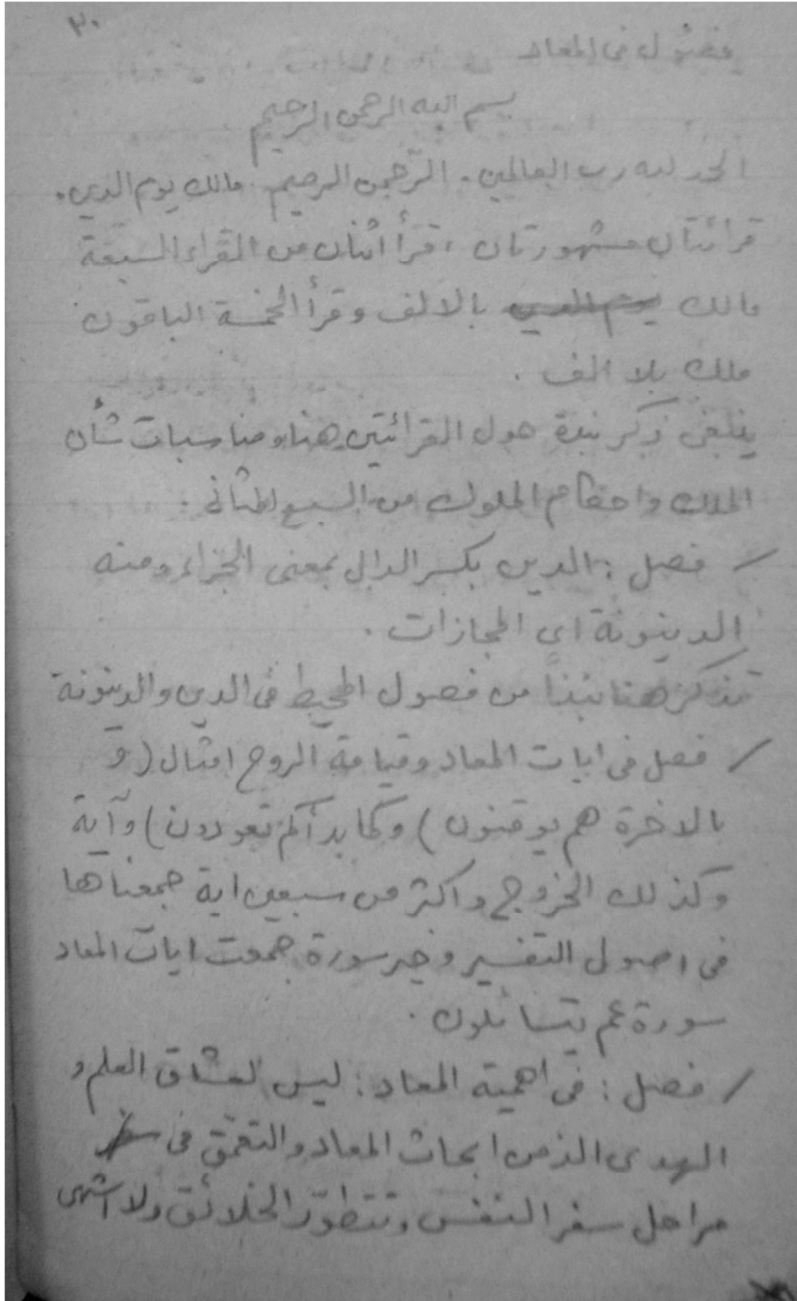 ٣٠
فصول فى المعاد
بسم الله الرحمن الرحيم
الحمد لله رب العالمين. الرّحمن الرحيم. مالك يوم الدين.
قرائتان مشهورتان، قرأ اثنان من القراء السبعة
مالك يوم الدين بالالف وقرأ الخمسة الباقون
ملك بلا الف.
ينبغى ذكر نبذة حول القرائتين هنا ومناسبات شأن
الملك واحكام الملوك من السبع المثانى.
/ فصل: الدين بكسر الدال بمعنى الجزاء ومنه
الدينونة اى المجازات.
نذكر هنا نبذاً من فصول المحيط فى الدين والدينونة
/ فصل فى ايات المعاد وقيامة الروح امثال (و
بالاخرة هم يوقنون) و(كما بدأكم تعودون) وآية
وكذلك الخروج واكثر من سبعين اية جمعناها
فى اصول التفسير وخير سورة جمعت ايات المعاد
سورة عم يتسائلون.
/ فصل: فى اهمية المعاد: ليس لعشاق العلم و
الهدى الذ من ابحاث المعاد والتعمّق فى
مراحل سفر النفس وتتطوّر الخلائق ولا اشهى